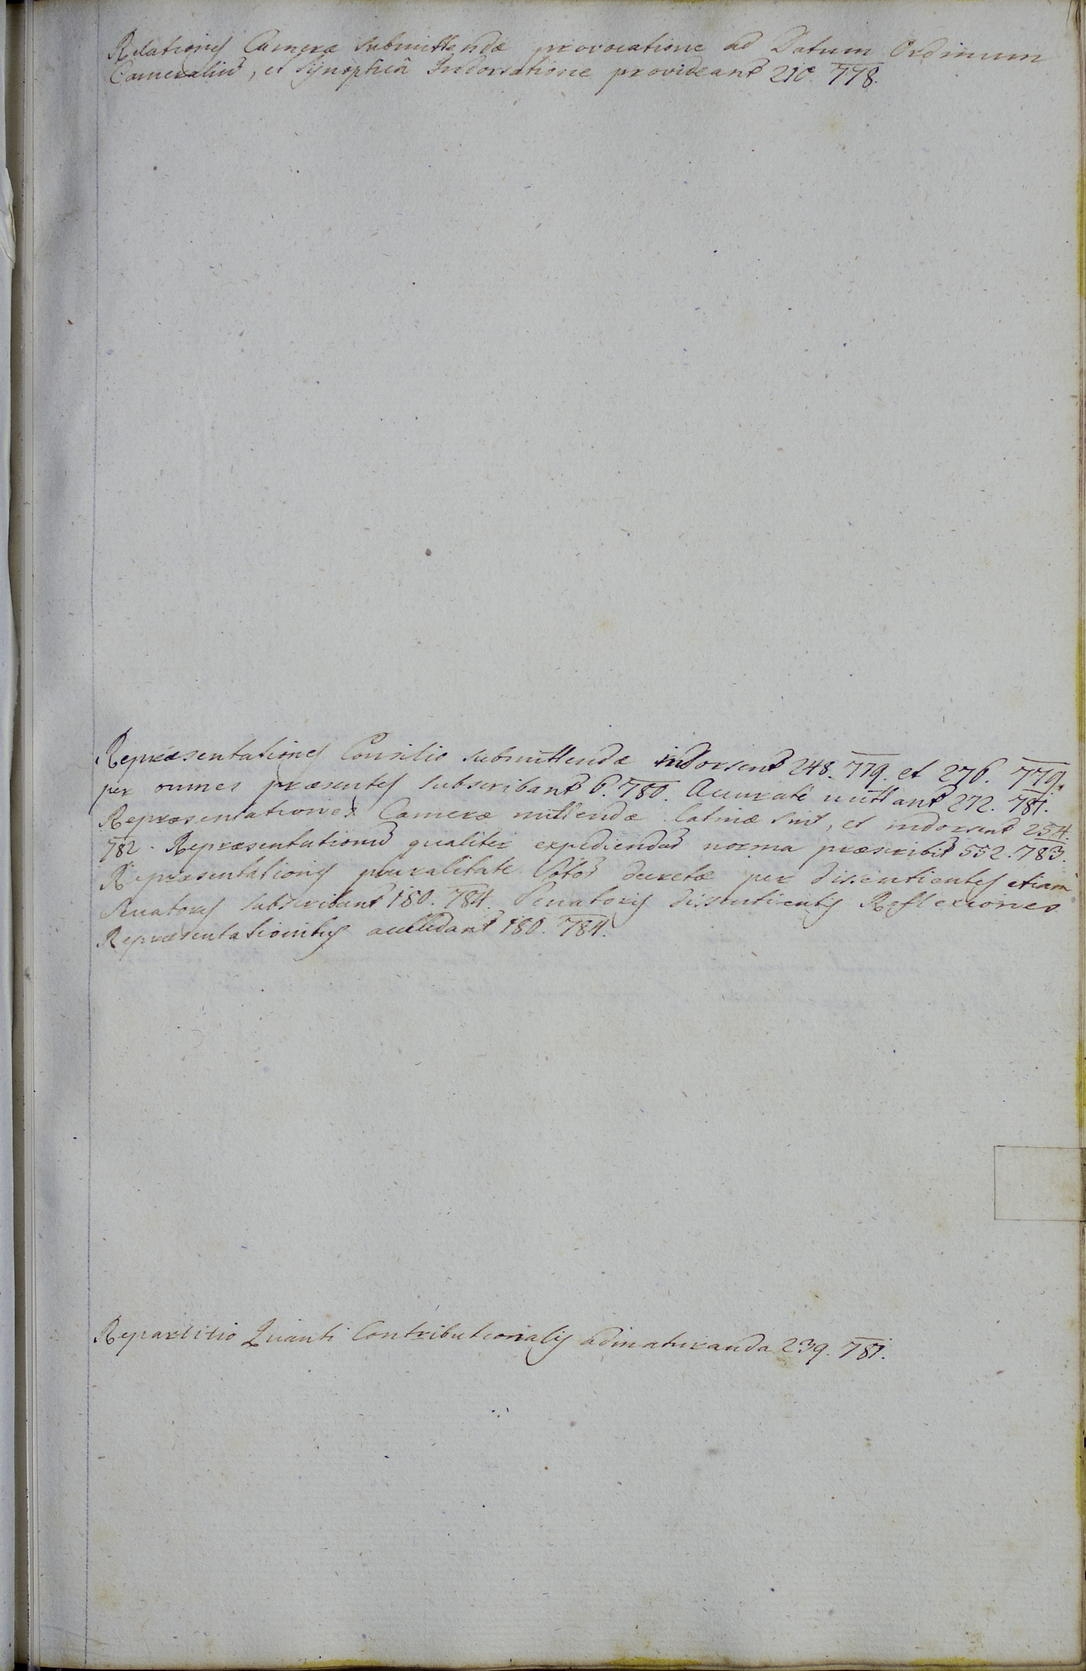 Relationes Cameræ submittendæ provocatione ad Datum Ordinum
Cameralium, et Synopticâ Indorsatione provideantur 210. 778.
Repræsentationes Consilio submittendæ indorsentur 248. 779. et 276. 779.
per omnes præsentes subscribantur 6. 780. Accuratè mittantur 272. 781.
Repræsentationes Cameræ mittendæ Latinæ sint, et indorsentur 254.
782. Repræsentationum qualiter expediendarum norma præscribitur 552. 783.
Repræsentationes pluralitate Votorum decretæ per dissentientes etiam
Senatores subscribantur 180. 784. Senatoris dissentientis Reflexiones
Repræsentationibus accludantur 180. 784.
Repartitio Quanti Contributionalis admaturanda 239. 787.